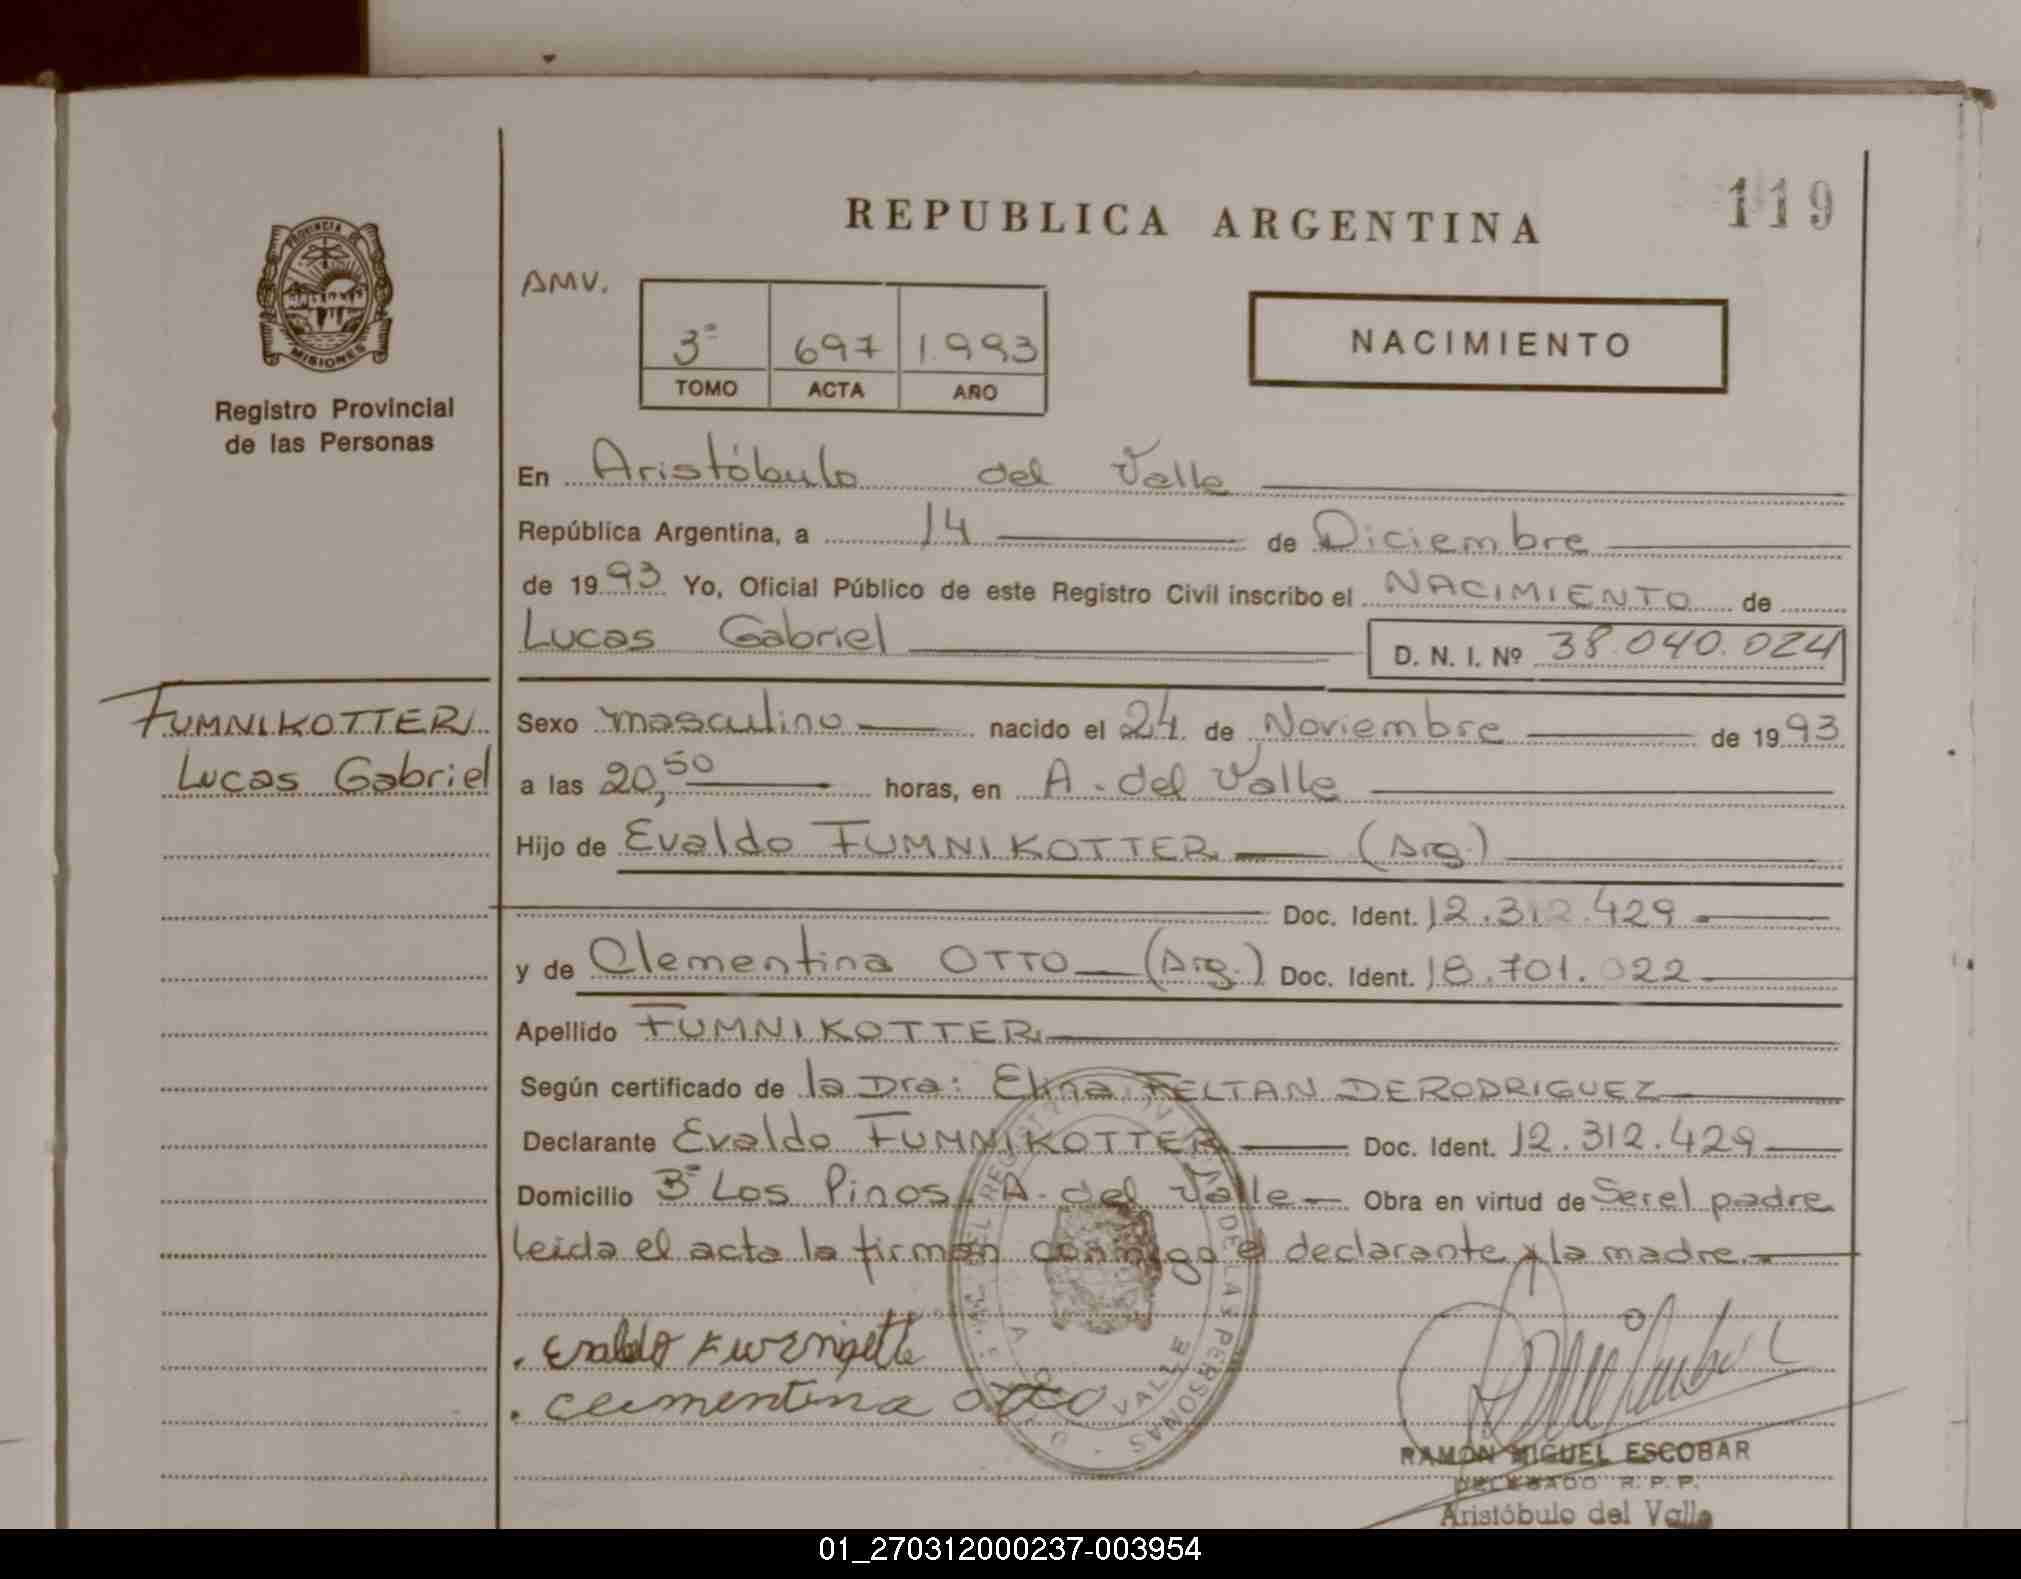 119
REPUBLICA ARGENTINA
PROVINCIA DE
MISIONES
Registro Provincial
de las Personas
AMV.
3º 697 1.993
TOMO ACTA AÑO
NACIMIENTO
En Aristóbulo del Valle
República Argentina, a 14 de Diciembre
de 1993 Yo, Oficial Público de este Registro Civil inscribo el NACIMIENTO de
Lucas Gabriel D. N. I. Nº 38.040.024
FUMNIKOTTER
Lucas Gabriel
Sexo masculino nacido el 24 de Noviembre de 1993
a las 20,50 horas, en A. del Valle
Hijo de Evaldo FUMNIKOTTER (Arg.)
Doc. Ident. 12.312.429
y de Clementina OTTO (Arg.) Doc. Ident. 18.701.022
Apellido FUMNIKOTTER
Según certificado de la Dra: Elina FELTAN DE RODRIGUEZ
Declarante Evaldo FUMNIKOTTER Doc. Ident. 12.312.429
Domicilio Bº Los Pinos A. del Valle Obra en virtud de Ser el padre
leida el acta la firman conmigo el declarante y la madre.
DE LAS PERSONAS
VALLE
clementina otto
RAMON MIGUEL ESCOBAR
DELEGADO R. P. P.
Aristóbulo del Valle
01_270312000237-003954